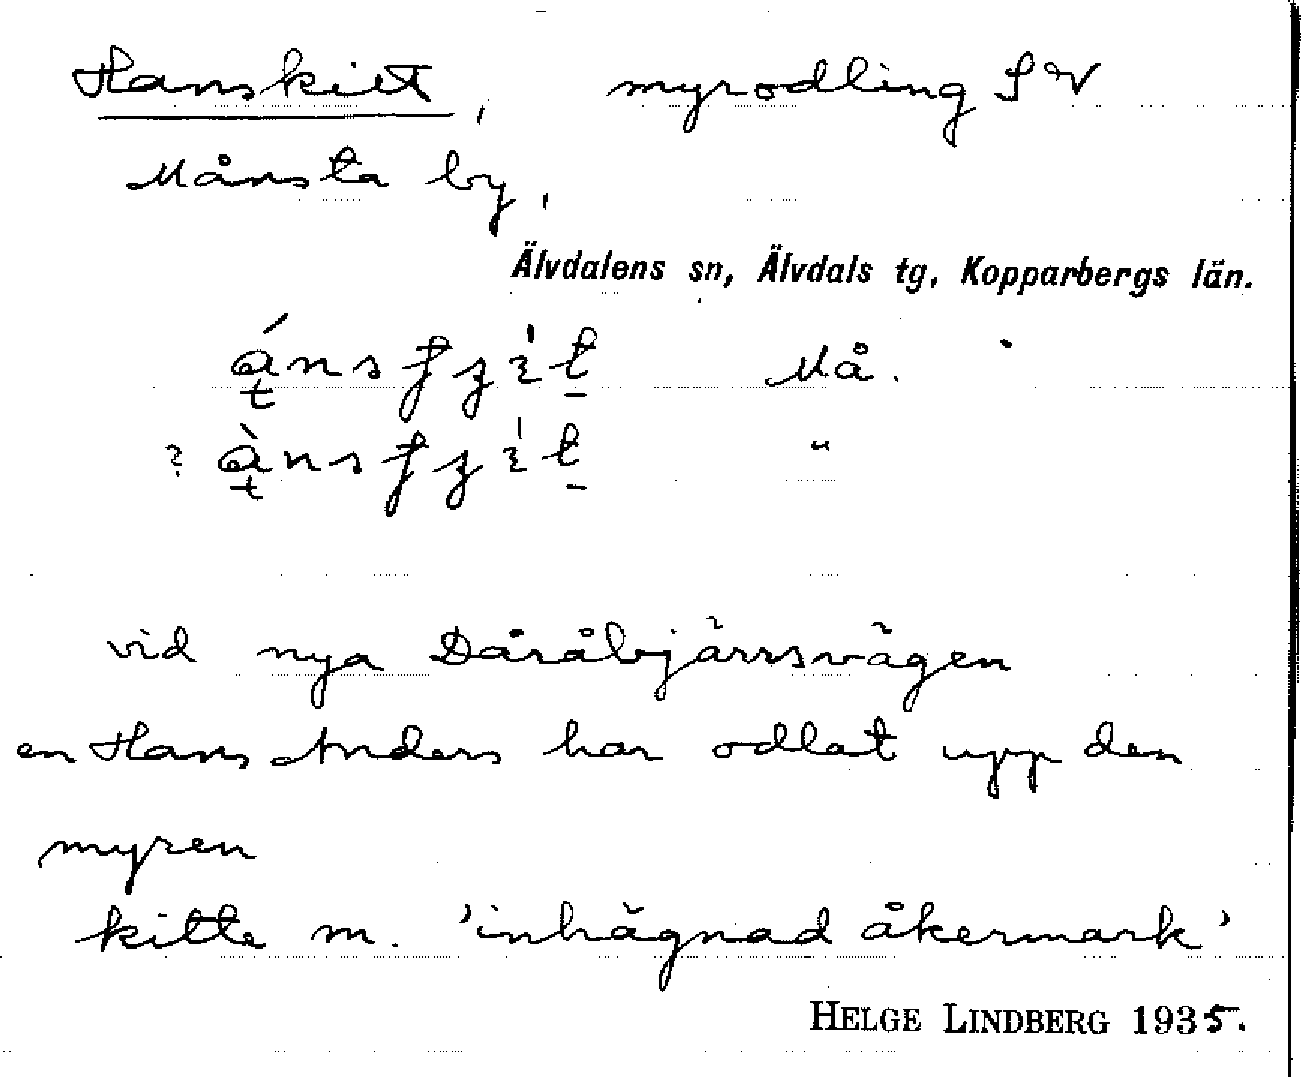 Hanskitt, myrodling SV
Månsta by,
Älvdalens sn, Älvdals tg, Kopparbergs län.
Må.
? "
vid nya Dåråbjärrsvägen
en Hans Anders har odlat upp den
myren
kitte m. 'inhägnad åkermark'
HELGE LINDBERG 1935.